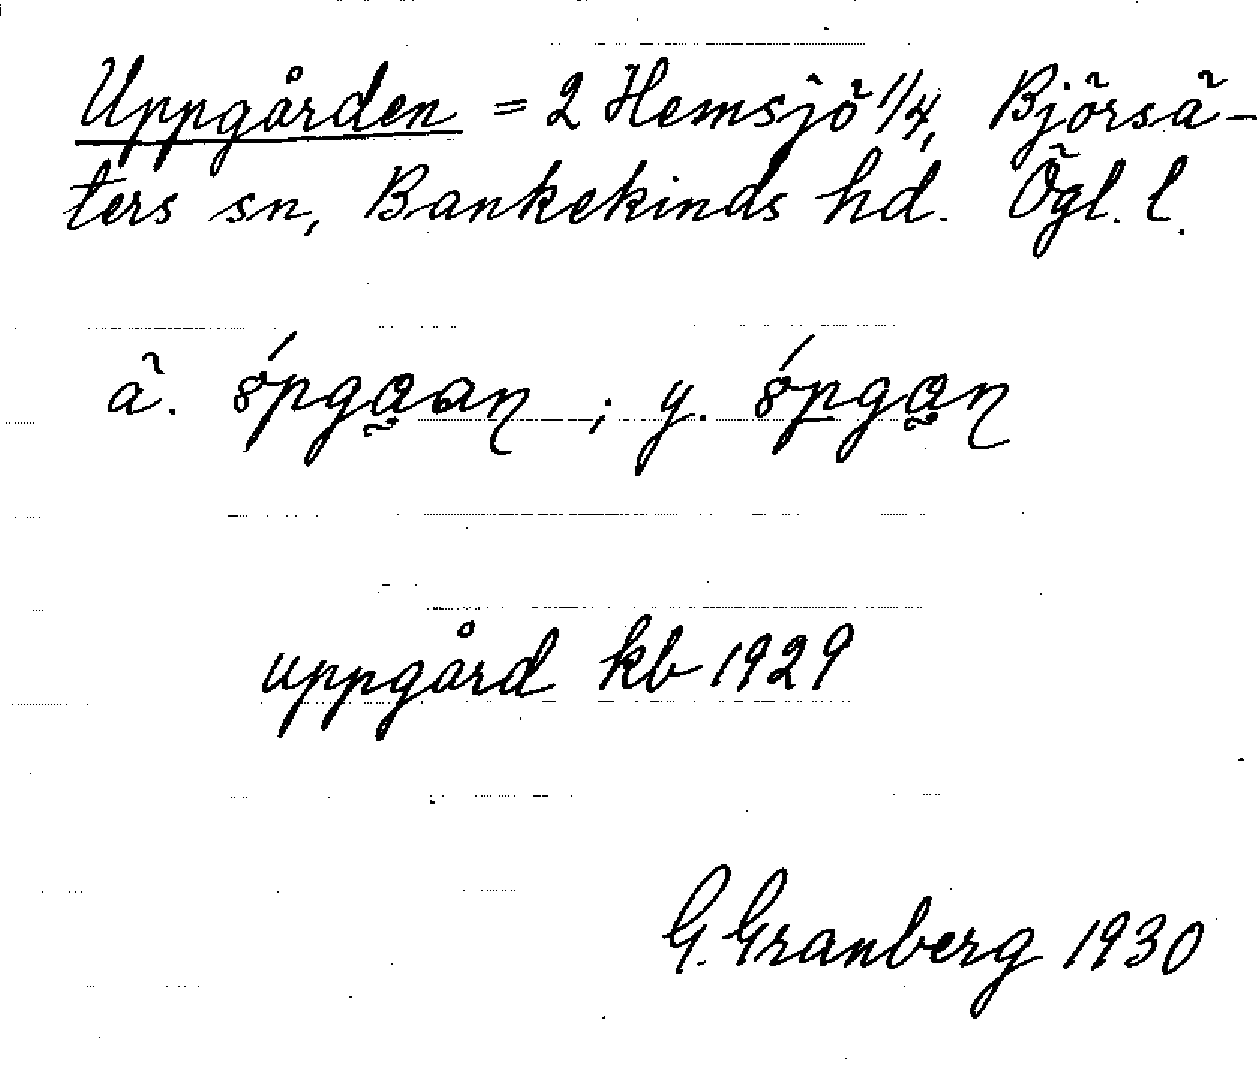 Uppgården = 2 Hemsjö 1/4, Björsä-
ters sn, Bankekinds hd. Ögl. l.
ä. ; y.
uppgård kb 1929
G. Granberg 1930